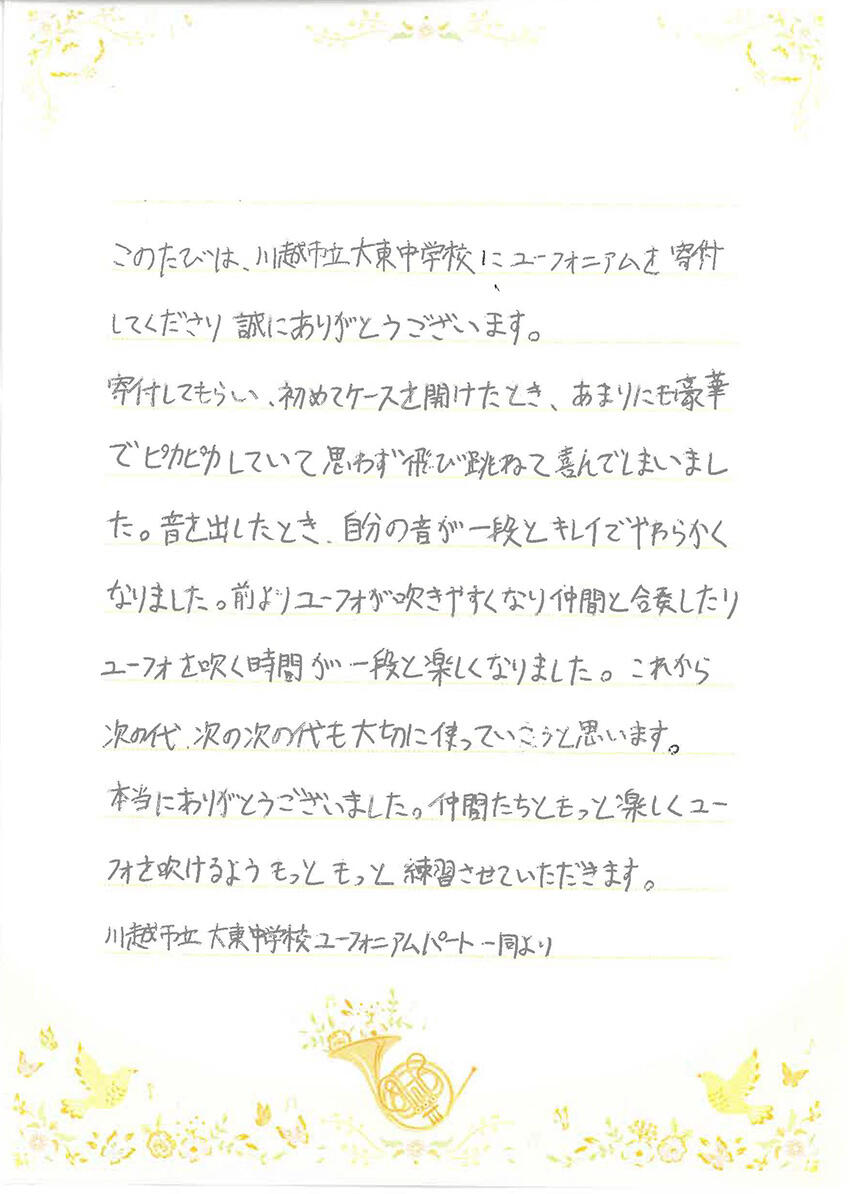 このたびは、川越市立大東中学校にユーフォニアムを寄付
してくださり誠にありがとうございます。
寄付してもらい、初めてケースを開けたとき、あまりにも豪華
でピカピカしていて思わず飛び跳ねて喜んでしまいまし
た。音を出したとき、自分の音が一段とキレイでやわらかく
なりました。前よりユーフォが吹きやすくなり仲間と合奏したり
ユーフォを吹く時間が一段と楽しくなりました。これから
次の代、次の次の代も大切に使っていこうと思います。
本当にありがとうございました。仲間たちともっと楽しくユー
フォを吹けるようもっともっと練習させていただきます。
川越市立大東中学校ユーフォニアムパート一同より